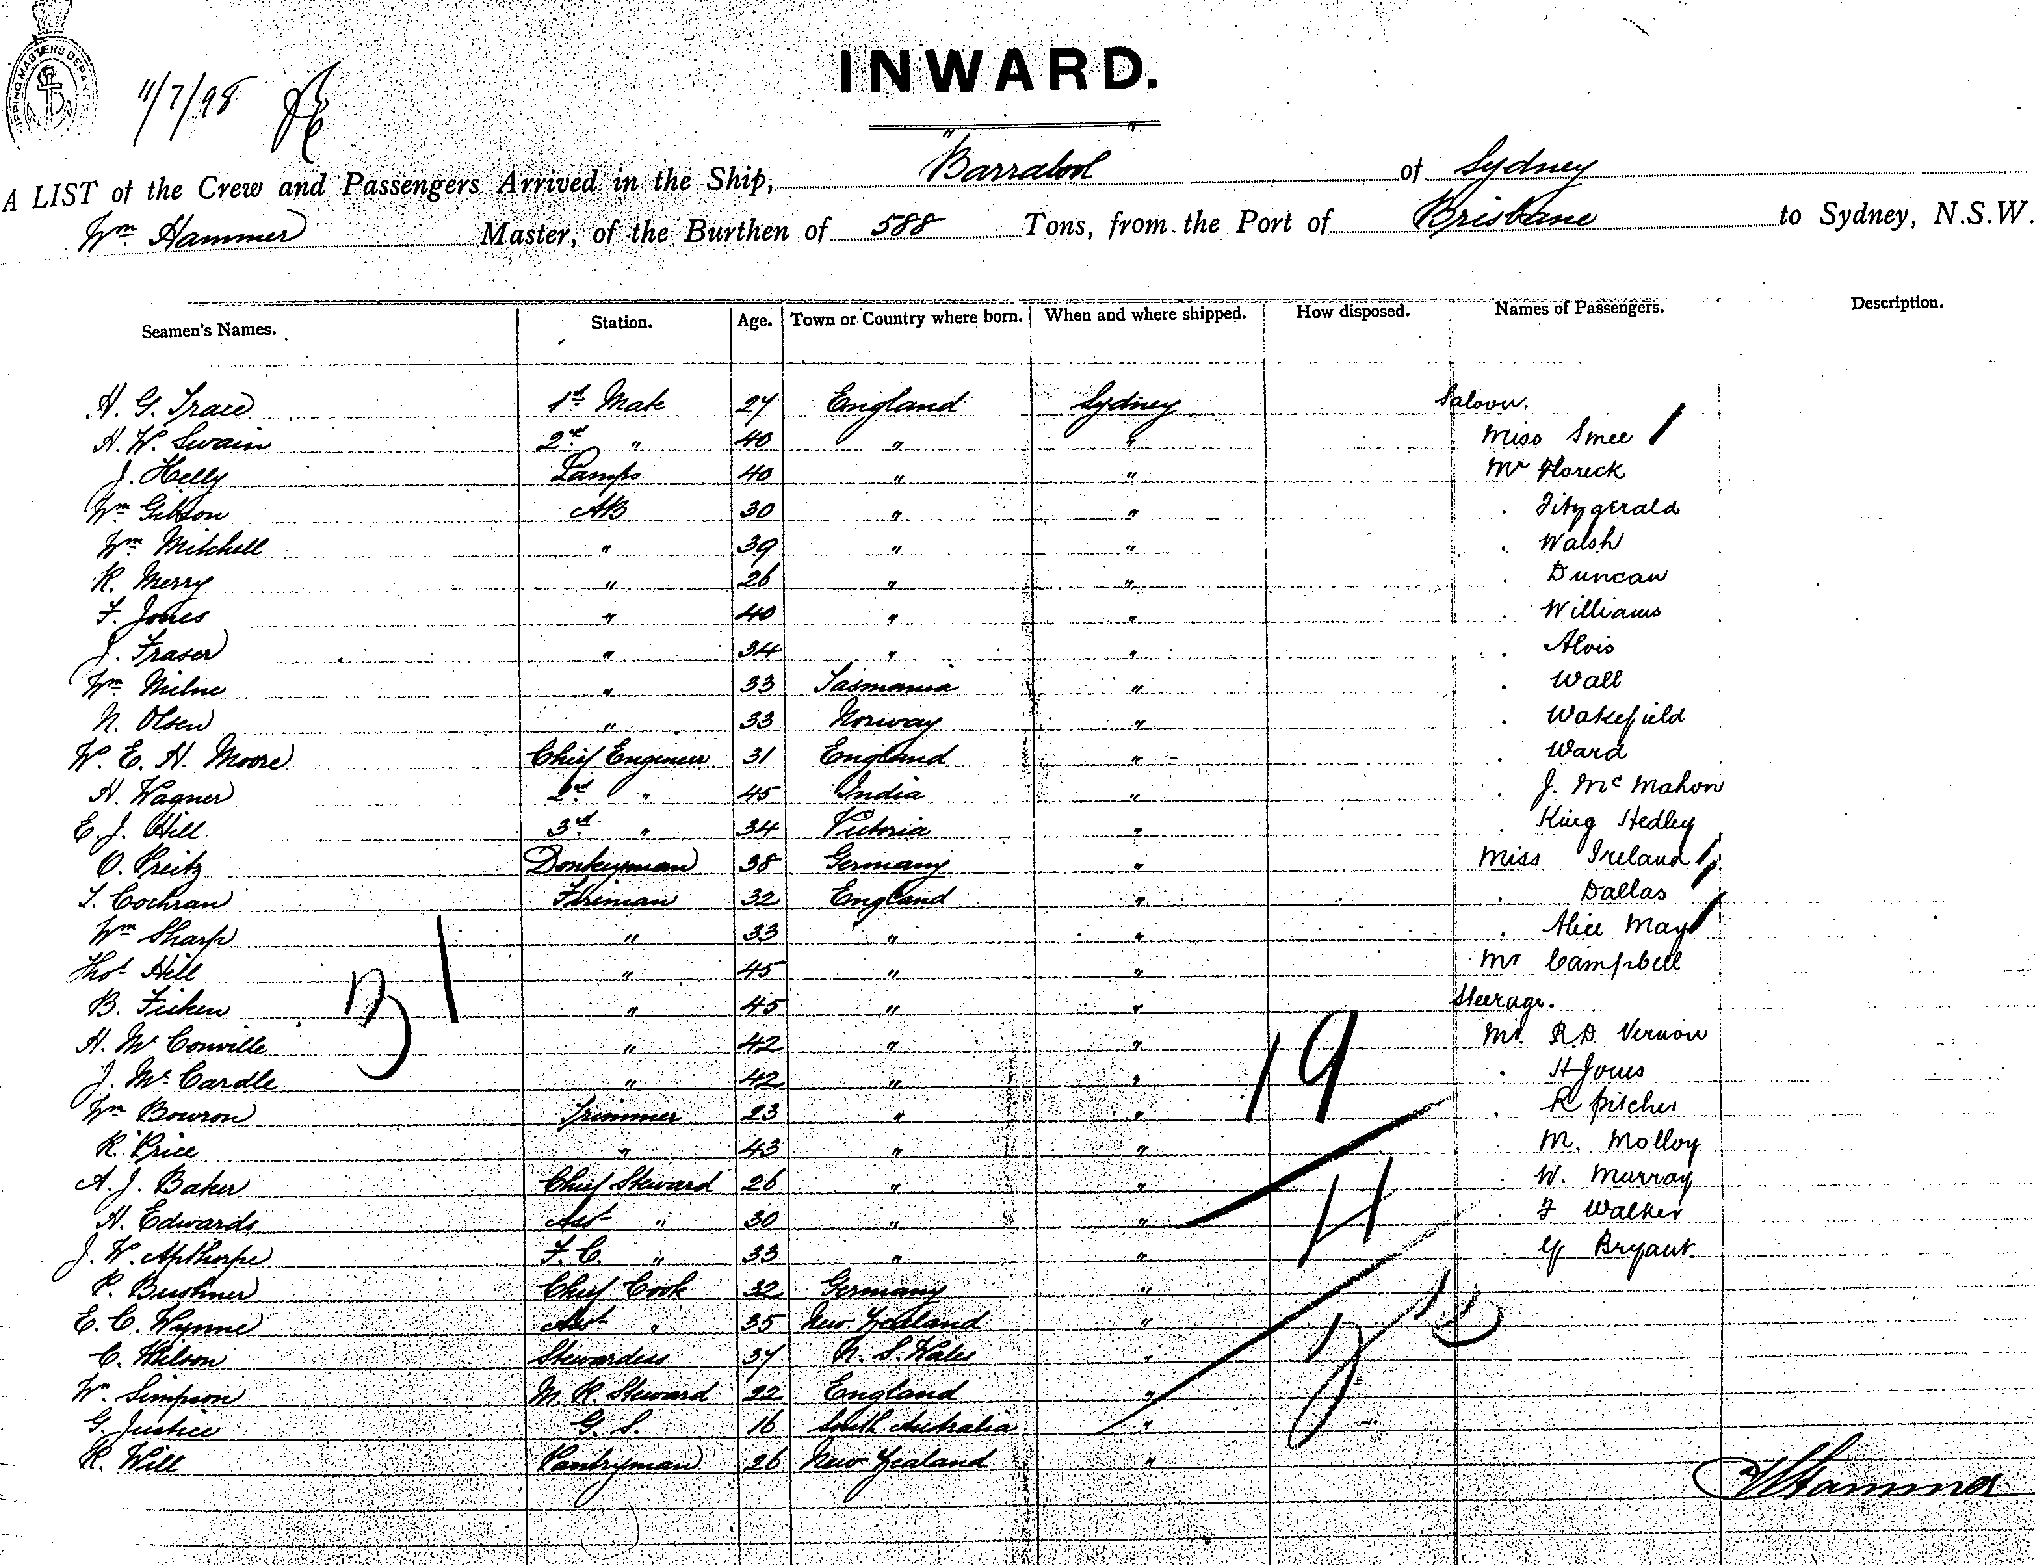 SHIPPING MASTER'S DEPT
11/7/98
INWARD.
A LIST of the Crew and Passengers Arrived in the Ship, "Barrabool" of Sydney
Wm Hammer Master, of the Burthen of 588 Tons, from the Port of Brisbane to Sydney, N.S.W.
Seamen's Names. Station. Age. Town or Country where born. When and where shipped. How disposed. Names of Passengers. Description.
A. G. Traice 1st Mate 27 England Sydney Saloon.
A. W. Swain 2nd " 40 " " Miss Smee
J. Helly Lamps 40 " " Mr Horeck
Wm Gibson AB 30 " " . Fitzgerald
Wm Mitchell " 39 " " . Walsh
R. Merry " 26 " " . Duncan
F. Jones " 40 " " . Williams
J. Fraser " 34 " " . Alois
Wm Milne " 33 Tasmania " . Wall
N. Olsen " 33 Norway " . Wakefield
W. E. H. Moore Chief Engineer 31 England " . Ward
H. Wagner 2nd " 45 India " . J. McMahon
E. J. Hill 3rd " 34 Victoria " . King Hedley
O. Preitz Donkeyman 38 Germany " Miss Ireland
T. Cochran Fireman 32 England " . Dallas
Wm Sharp " 33 " " . Alice May
Thos Hill " 45 " " Mr Campbell
B. Ficken " 45 " " Steerage.
H. McConville " 42 " " Mr. R.D. Vernon
J. McCardle " 42 " " . H Jones
Wm Bowron Trimmer 23 " " . R Pilcher
R. Price " 43 " " . M. Molloy
A. J. Baker Chief Steward 26 " " . W. Murray
H. Edwards Asst " 30 " " . F Walker
J. W. Apthorpe F. C. " 33 " " . G Bryant
P. Bushner Chief Cook 32 Germany "
E. C. Wynne Asst " 35 New Zealand "
C. Wilson Stewardess 37 N. S. Wales "
Wm Simpson M. R. Steward 22 England "
G. Justice G. S. 16 South Australia "
R. Will Pantryman 26 New Zealand "
31
19
W Hammer